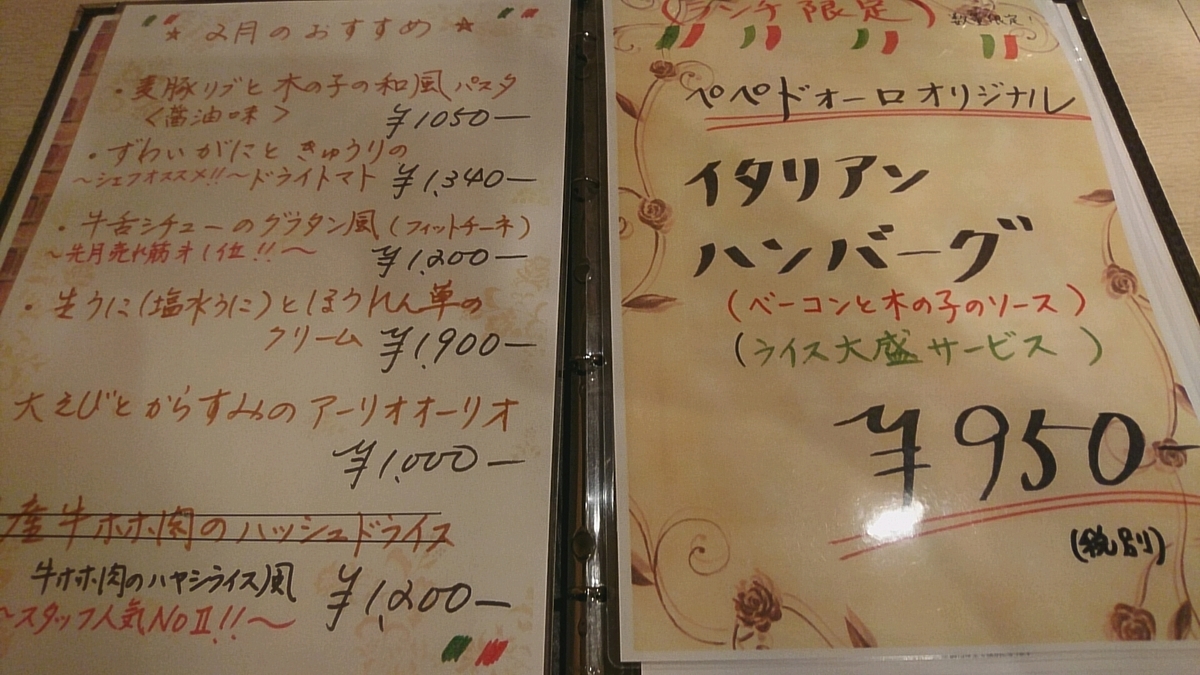 ★ 2月のおすすめ ★
・麦豚リブと木の子の和風パスタ
〈醤油味〉 ¥1050ー
・ずわいがにときゅうりの
～シェフオススメ!!～ドライトマト ¥1,340ー
・牛舌シチューのグラタン風(フィットチーネ)
～先月売れ筋オ1位!!～ ¥1,200ー
・生うに(塩水うに)とほうれん草の
クリーム ¥1,900ー
大えびとからすみのアーリオオーリオ
¥1,000ー
産牛ホホ肉のハッシュドライス
牛ホホ肉のハヤシライス風 ¥1,200ー
～スタッフ人気NoⅡ!!～
(ランチ限定) 数量限定!
ペペドォーロオリジナル
イタリアン
ハンバーグ
(ベーコンと木の子のソース)
(ライス大盛サービス)
¥950ー
(税別)